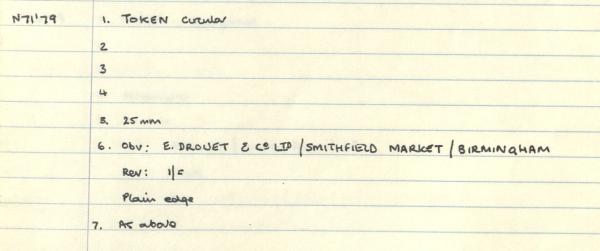 N71'79 1. TOKEN circular
2
3
4
5. 25mm
6. Obv: E. DROUET & Co LTD / SMITHFIELD MARKET / BIRMINGHAM
Rev: 1/=
Plain edge
7. As above